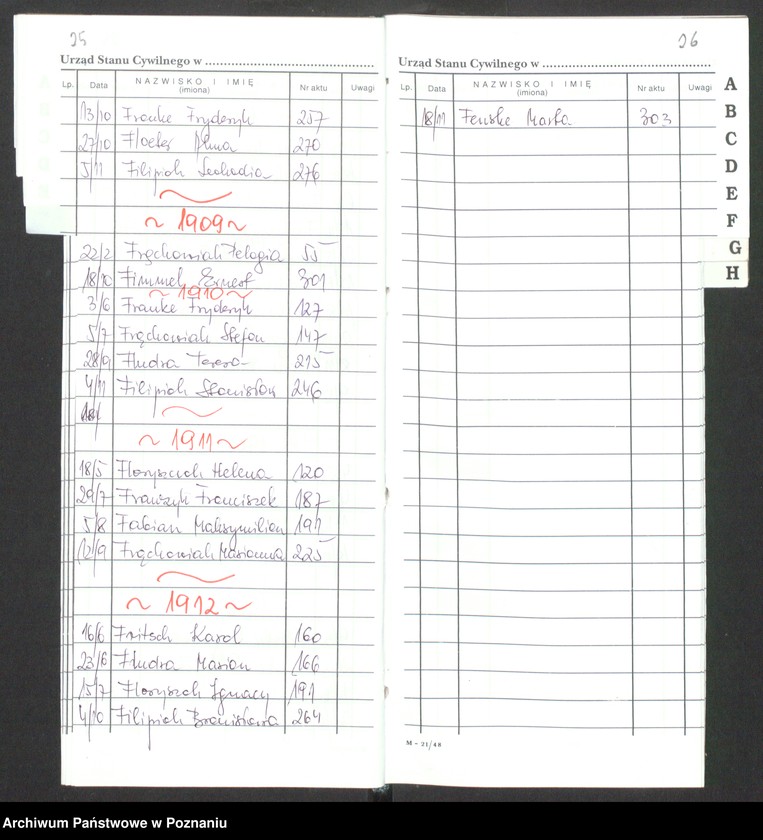 25
Urząd Stanu Cywilnego w
Lp. Data NAZWISKO I IMIĘ (imiona) Nr aktu Uwagi
13/10 Franke Fryderyk 257
27/10 Floeter Alma 270
5/11 Filipiak Leokadia 276
~ 1909 ~
22/2 Frąckowiak Pelagia 55
18/10 Fimmel Ernest 301
~ 1910 ~
3/6 Franke Fryderyk 127
5/7 Frąckowiak Stefan 147
28/9 Fludra Teresa 215
4/11 Filipiak Stanisław 246
~ 1911 ~
18/5 Floryszak Helena 120
29/7 Frańczyk Franciszek 187
5/8 Fabian Maksymilian 191
12/9 Frąckowiak Marianna 225
~ 1912 ~
16/6 Fritsch Karol 160
23/6 Fludra Marian 166
15/7 Floryszak Ignacy 191
4/10 Filipiak Bronisława 264
26
Urząd Stanu Cywilnego w
Lp. Data NAZWISKO I IMIĘ (imiona) Nr aktu Uwagi
18/11 Fenske Marta 303
A
B
C
D
E
F
G
H
M - 21/48
Archiwum Państwowe w Poznaniu